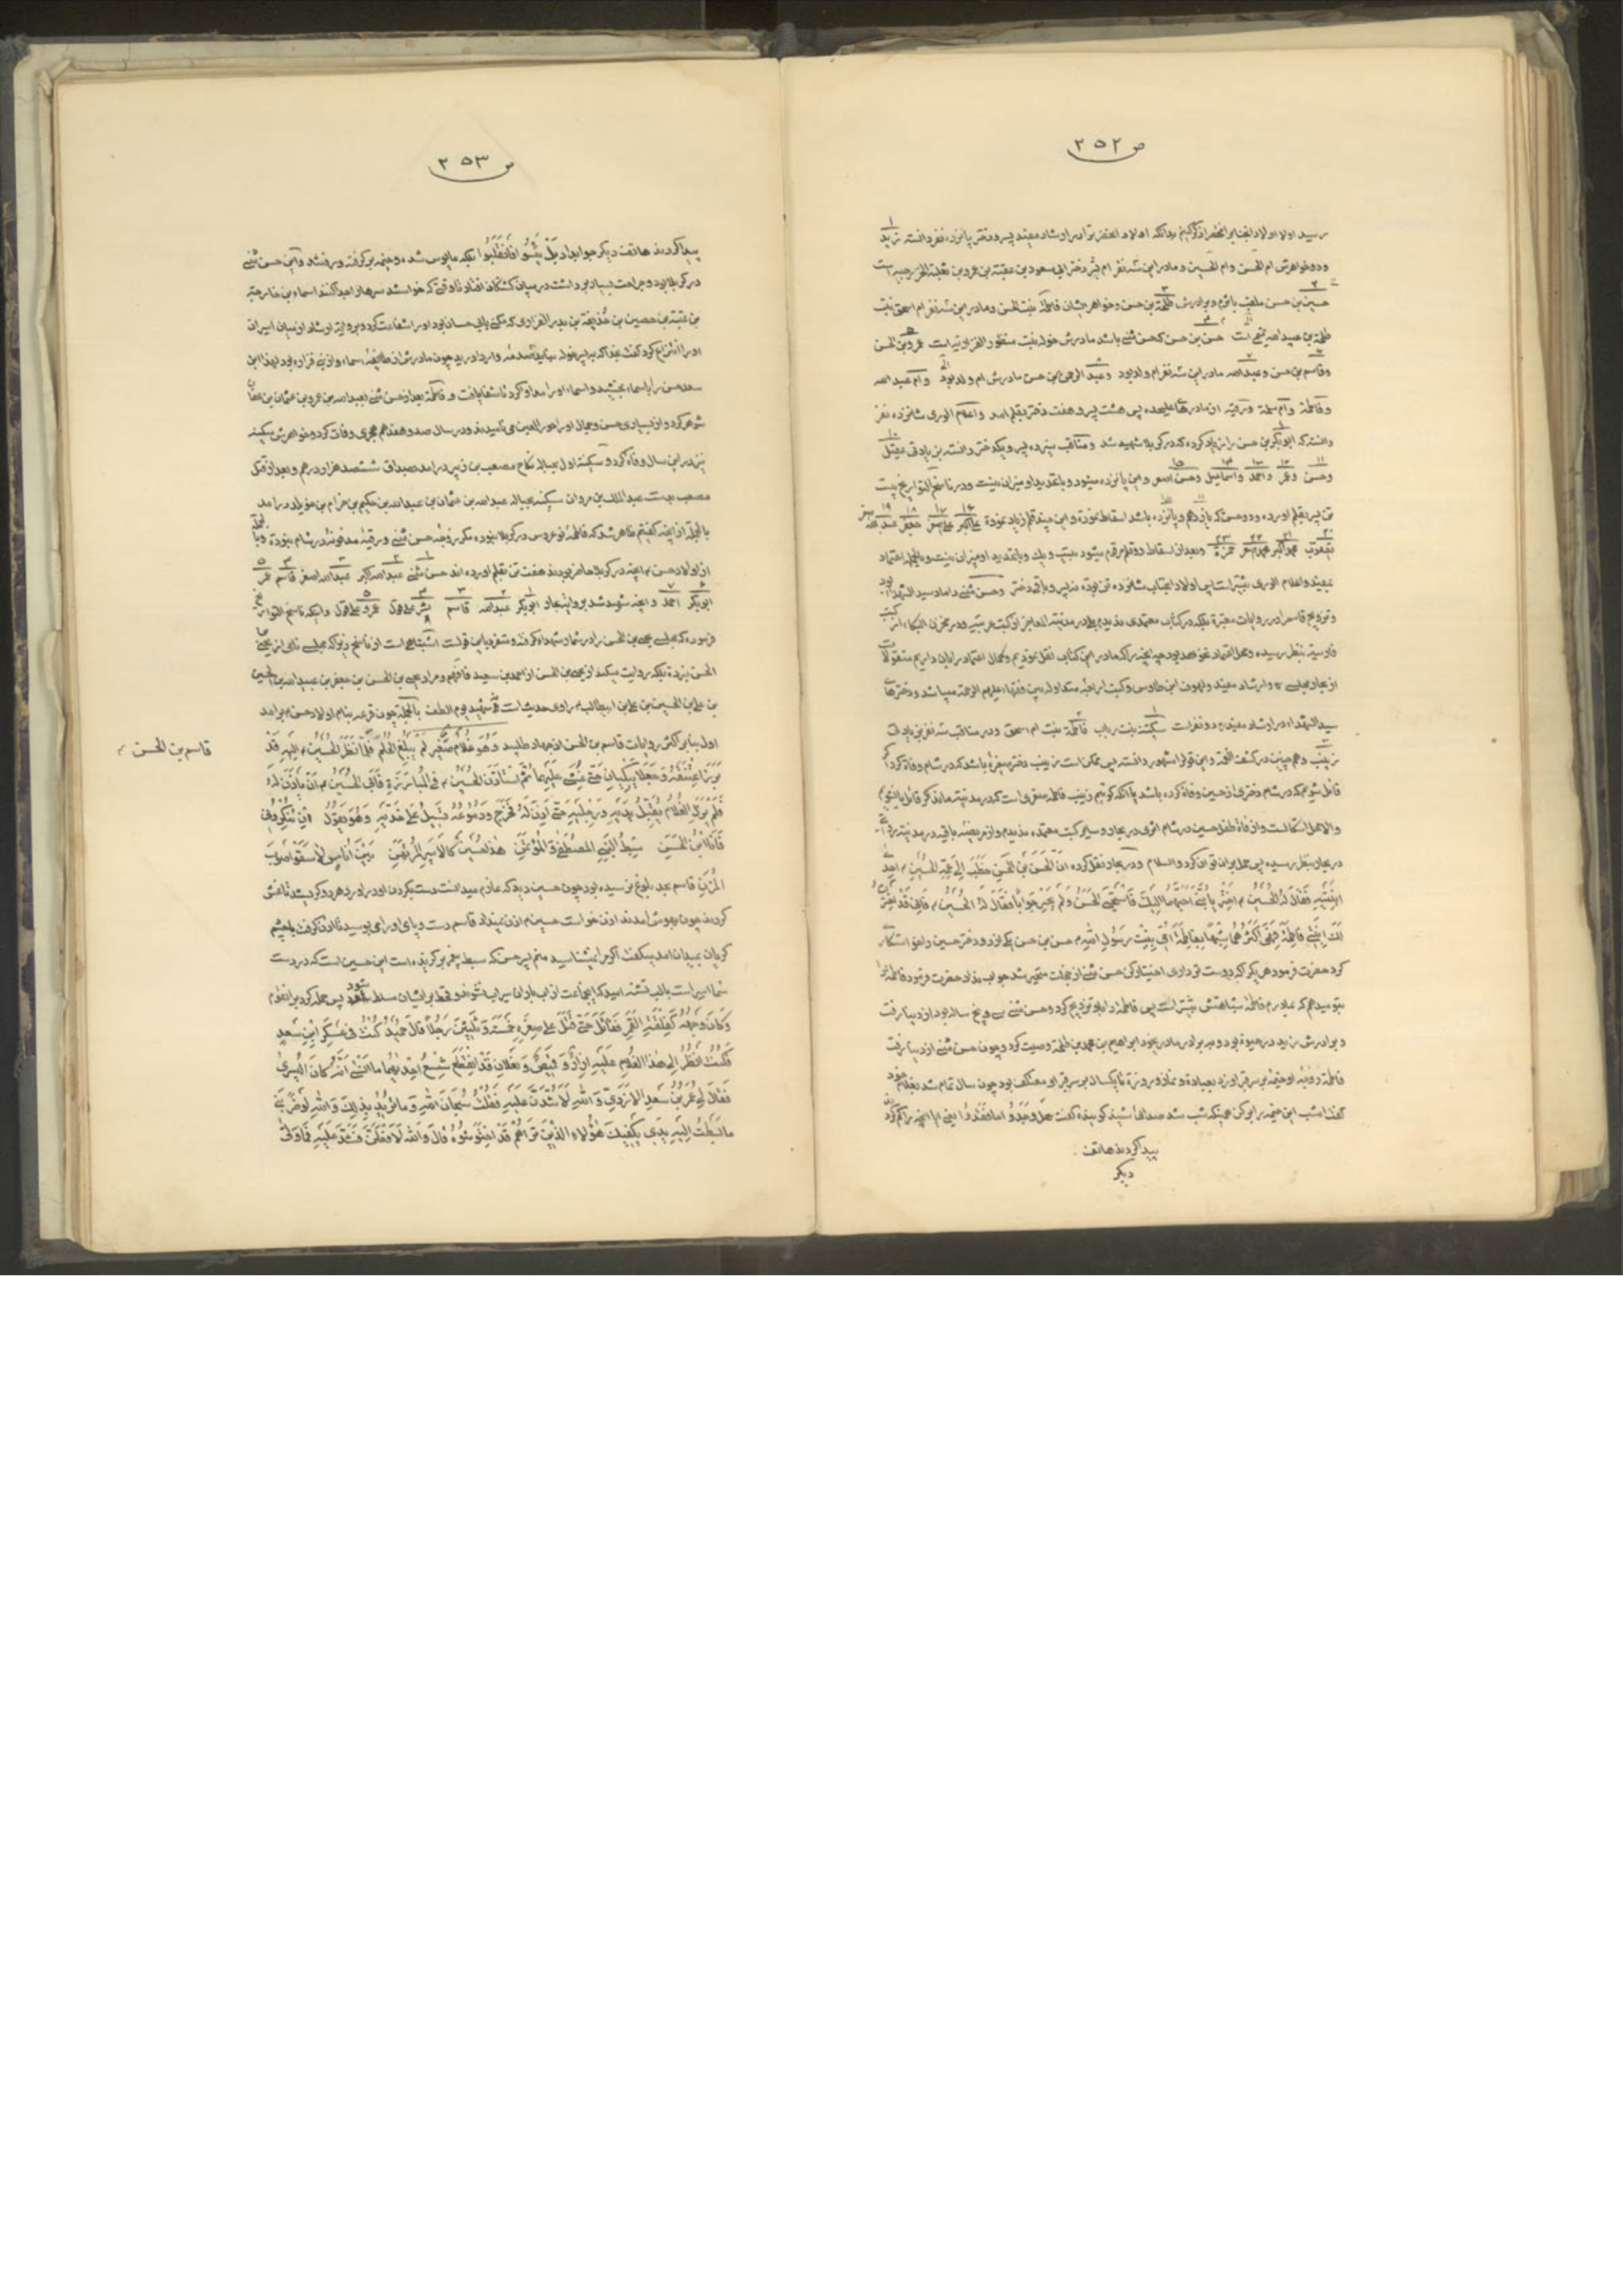 ص ٢٥٢
رسید اولا اولاد انجنابرا مختصرا ذکر کنیم بدانکه اولاد انحضرترا در ارشاد مفید پسر و دختر پانزده نفر دانسته زید
و دو خواهرش ام الحسن و ام الحسین و مادر این سه نفر ام بشر دختر ابی مسعود بن عقبة بن عمرو بن ثعلبة الخزرجیه است
حسین بن حسن ملقب باثرم و برادرش طلحة بن حسن و خواهر ایشان فاطمة بنت الحسن و مادر این سه نفر ام اسحق بنت
طلحة بن عبید الله تیمی است حسن بن حسن که حسن مثنی باشد مادرش خوله بنت منظور الفزاریه است عمرو بن الحسن
و قاسم بن حسن و عبدالله مادر این سه نفر ام ولد بود و عبد الرحمن بن حسن مادرش ام ولد بود و ام عبدالله
و فاطمة و ام سلمة و رقیه از مادرهای علیحده پس هشت پسر و هفت دختر بقلم امد و اعلام الوری شانزده نفر
دانسته که ابوبکر بن حسن را زیاد کرده که در کربلا شهید شد و مناقب سیزده پسر و یکدختر دانسته بزیادتی عقیل
و حسن و عمر و احمد و اسماعیل و حسن اصغر و این پانزده میشود و باتعدید او میزان نیست و در ناسخ التواریخ بیست
تن پسر بقلم اورده و دو حسن که یازدهم و پانزده باشد اسقاط نموده و این چند قلم زیاد نموده علی اکبر علی اصغر جعفر عبدالله اصغر
یعقوب محمد اکبر محمد اصغر حمزه و بعد از اسقاط دو قلم مرقوم میشود بیست و یک و باتعدید او میزان نیست و بالجمله اعتماد
بمفید و اعلام الوری بیشتر است پس اولاد انجناب شانزده تن بوده نه پسر و باقی دختر و حسن مثنی داماد سید الشهداء بود
و تزویج قاسم را در روایات معتبرة بلکه در کتاب معتمدی ندیدیم بلی در مدینة المعاجز از کتب عربیه و در مخزن البکاء از کتب
فارسیة بنظر رسیده و محل اعتماد نخواهد بود چه انچه را که ما در این کتاب نقل نمودیم و کمال اعتماد را بان داریم منقولات
از بحار مجلسی و ارشاد مفید و لهوف ابن طاوس و کتب اربعه متداوله بین فقهاء علیهم الرحمة میباشد و دخترهای
سید الشهداء در ارشاد مفید دو نفرات سکینة بنت رباب فاطمة بنت ام اسحق و در مناقب سه نفر بزیادتی
زینب و همچنین در کشف الغمة و این قول را مشهور دانسته پس ممکن است زینب دختر صغیرة باشد که در شام وفاة کرد اگر
قائل شویم که در شام دختری از حسین وفاة کرده باشد یا انکه گوئیم زینب فاطمه صغری است که در مدینه مانده
در بحار بنظر رسیده پس حمل بران توان کرد والسلام و در بحار نقل کرده انّ الحَسَنَ بنَ الحَسَنِ خَطَبَ اِلی عَمِّهِ الحُسَینِ احدی
ابنَتَیهِ فَقالَ لَهُ الحُسَینُ اختَر یا بُنَیَّ اَحَبَّهُما اِلَیکَ فَاستَحیَی الحَسَنُ وَلَم یُحِر جَواباً فَقالَ لَهُ الحُسَینُ فَاِنّی قَد اختَرتُ
لَکَ ابنَتی فاطِمَةَ فَهِیَ اَکثَرُهُما شَبَهاً بِفاطِمَةَ اُمّی بِنتِ رَسُولِ اللهِ حسن بن حسن یکی از دو دختر حسین را خواستگاری
کرد حضرت فرمود هر یک را که دوست تر داری اختیار کن حسن مثنی از خجلت متحیر شد جواب نداد حضرت فرمود فاطمه را
بتو میدهم که بمادرم فاطمه شباهتش بیشتر است پس فاطمه را با او تزویج کرد و حسن مثنی سی و پنج ساله بود از دنیا رفت
و برادرش زید در حیوة بود و ببرادر مادری خود ابراهیم بن محمد بن طلحة وصیت کرد و چون حسن مثنی از دنیا رفت
فاطمة زوجه او خیمه بر سر قبر او زد بعبادة و نماز و روزة تا یکسال بر سر قبر او معتکف بود چون سال تمام شد بغلام خود
گفت امشب این خیمه را بر کن همینکه شب شد صدائی شنید گوینده گفت هل وَجَدُوا ما فقدوا یعنی ایا انچه را گم کردند
پیدا کردند هاتف
دیگر
ص ٢٥٣
پیدا کردند هاتف دیگر جواب داد بَلْ یَئِسُوا فَانقَلَبُوا بلکه مایوس شده و خیمه بر گرفته و رفتند و این حسن مثنی
در کربلا بود و جراحت بسیار برداشت در میان کشتگان افتاد تا وقتی که خواستند سرها را جدا کنند اسماء بن خارجة
بن عقبة بن حصین بن حذیفة بن بدر الفزاری که مکنی بابی حسان بود او را شفاعت کرد و بروایة ارشاد از میان اسیران
او را انتزاع کرد گفت بخدا که به پسر خوله نباید صدمه وارد اید چون مادرش از طایفه اسماء و از بنی فزاره بود لهذا ابن
سعد حسن را باسماء بخشید و اسماء او را مداوا کرد تا شفا یافت و فاطمة بعد از حسن مثنی بعبدالله بن عمرو بن عثمان بن عفان
شوهر کرد و از بسیاری حسن و جمال او را حور العین می نامیدند و در سال صد و هفدهم هجری وفات کرد و خواهرش سکینه
نیز در این سال وفاة کرد و سکینة اول بحباله نکاح مصعب بن زبیر درامد بصداق ششصد هزار درهم و بعد از قتل
مصعب بدست عبدالملک بن مروان سکینه بحباله عبدالله بن عثمان بن عبدالله بن حکیم بن حزام بن خویلد درامد
بالجمله از انچه گفتیم ظاهر شد که فاطمه نو عروس در کربلا نبوده مگر زوجه حسن مثنی و رقیه مدفونه در شام نبودة و بالجمله
از اولاد حسن انچه در کربلا حاضر بودند هفت تن بقلم اورده اند حسن مثنی عبدالله اکبر عبدالله اصغر قاسم عمر
ابوبکر احمد و انچه شهید شد بروایة بحار ابوبکر عبدالله قاسم بشر علی قول عمرو علی قول و اینکه ناسخ التواریخ
فرموده که مجلسی یحیی بن الحسن را در شمار شهداء گرفته و متفرد باین قولست اشتباهی است از ناسخ زیرا که مجلسی نامی از یحیی بن
الحسن نبرده بلکه روایت میکند از یحیی بن الحسن از احمد بن سعید فافهم و مراد یحیی بن الحسن بن جعفر بن عبیدالله بن الحسین
بن علی بن الحسین بن علی بن ابیطالب راوی حدیث است نه شهید یوم الطف بالجملة چون قرعه بنام اولاد حسن برامد
اول بنابر اکثر روایات قاسم بن الحسن اذن جهاد طلبید وَهُوَ غُلامٌ صَغیرٌ لَم یَبلُغِ الحُلُمَ فَلَمّا نَظَرَ الحُسَینُ اِلَیهِ قَد
بَرَزَ اعتَنَقَهُ وَجَعَلا یَبکِیانِ حَتّی غُشِیَ عَلَیهِما ثُمَّ استَأذَنَ الحُسَینَ فِی المُبارَزَةِ فَاَبَی الحُسَینُ اَن یَأذَنَ لَهُ
فَلَم یَزَلِ الغُلامُ یُقَبِّلُ یَدَیهِ وَرِجلَیهِ حَتّی اَذِنَ لَهُ فَخَرَجَ وَدُمُوعُهُ تَسیلُ عَلی خَدَّیهِ وَهُوَ یَقُولُ اِن تُنکِرُونی
فَاَنَا ابنُ الحَسَنِ سِبطُ النَّبِیِّ المُصطَفی وَالمُؤتَمَنِ هذا حُسَینٌ کَالاَسیرِ المُرتَهَنِ بَینَ اُناسٍ لا سُقُوا صَوبَ
المُزنِ قاسم بحد بلوغ نرسیده بود چون حسین دید که عازم میدانست دست بگردن او دراورد هر دو گریستند تا غش
کردند چون بهوش امدند اذن خواست حسین اذن نمیداد قاسم دست و پای او را می بوسید تا اذن گرفت با چشم
گریان بمیدان امد میگفت اگر مرا نمیشناسید منم پسر حسن که سبط پیغمبر برگزیده است این حسین است که در دست
شما اسیر است بالب تشنه امید که اینجماعت از اب باران سیراب نشوند و قحط بر ایشان مسلط شود پس حمله کرد بر انقوم
وَکانَ وَجهُهُ کَفِلقَةِ القَمَرِ فَقاتَلَ حَتّی قَتَلَ عَلی صِغَرِهِ خَمسَةً وَثَلثینَ رَجُلاً قالَ حُمَیدٌ کُنتُ فی عَسکَرِ ابنِ سَعدٍ
فَکُنتُ اَنظُرُ اِلی هذَا الغُلامِ عَلَیهِ اِزارٌ وَقَمیصٌ وَنَعلانِ قَدِ انقَطَعَ شِسعُ اَحَدِهِما ما اَنسی اَنَّهُ کانَ الیُسری
فَقالَ لی عُمَرُ بنُ سَعدِ الاَزدِیُّ وَاللهِ لَاَشُدَّنَّ عَلَیهِ فَقُلتُ سُبحانَ اللهِ وَما تُریدُ بِذلِکَ وَاللهِ لَو ضَرَبَنی
ما بَسَطتُ اِلَیهِ یَدی یَکفیکَ هؤُلاءِ الَّذینَ تَراهُم قَدِ احتَوَشُوهُ قالَ وَاللهِ لَاَفعَلَنَّ فَشَدَّ عَلَیهِ فَما وَلّی
قاسم بن الحسن